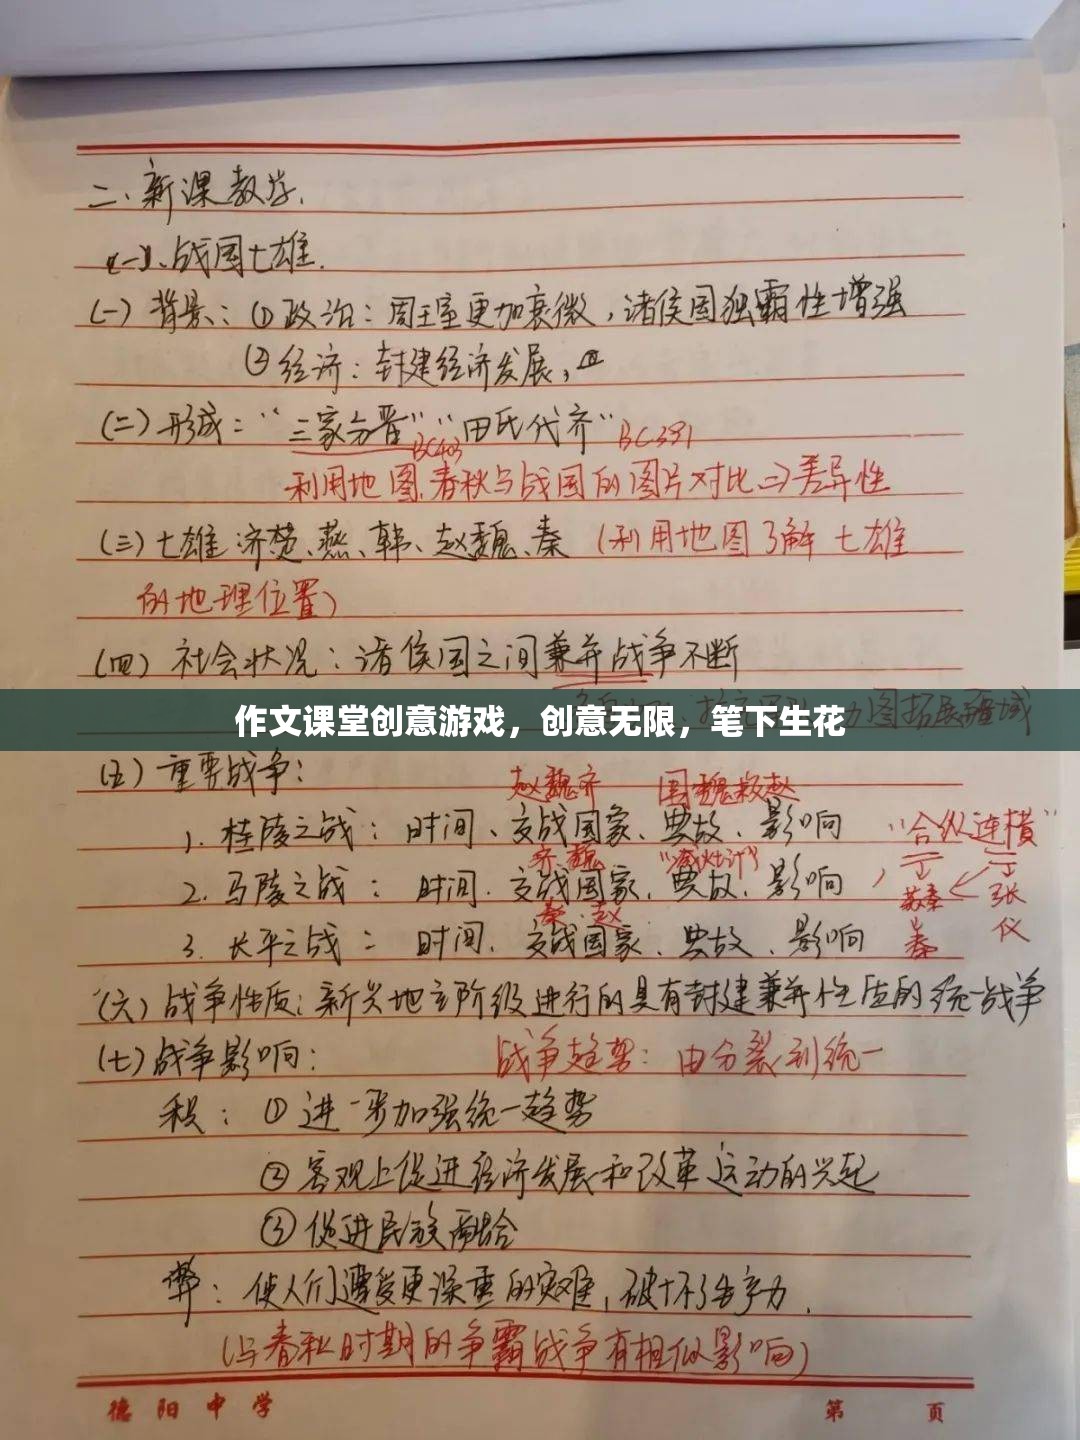 二、新课教学.
(一)、战国七雄.
(一) 背景：① 政治：周王室更加衰微，诸侯国独霸性增强
② 经济：封建经济发展，
(二) 形成：“三家分晋”“田氏代齐”
BC403 BC391
利用地图,春秋与战国的图片对比⇒差异性
(三) 七雄：济楚、燕、韩、赵魏、秦 (利用地图了解七雄
的地理位置)
(四) 社会状况：诸侯国之间兼并战争不断
图拓展疆域
作文课堂创意游戏，创意无限，笔下生花
(五) 重要战争：
赵魏齐 围魏救赵
1. 桂陵之战：时间、交战国家、典故、影响 “合纵连横”
齐 魏 “减灶计”
2. 马陵之战：时间.交战国家.典故.影响 苏秦 张仪
秦 赵 秦
3. 长平之战：时间.交战国家.典故.影响
(六) 战争性质：新兴地主阶级进行的具有封建兼并性质的统一战争
(七) 战争影响： 战争趋势：由分裂到统一
积：① 进一步加强统一趋势
② 客观上促进经济发展和改革运动的兴起
③ 促进民族融合
弊：使人们遭受更深重的灾难，破坏了生产力.
(与春秋时期的争霸战争有相似影响)
德阳中学 第 页